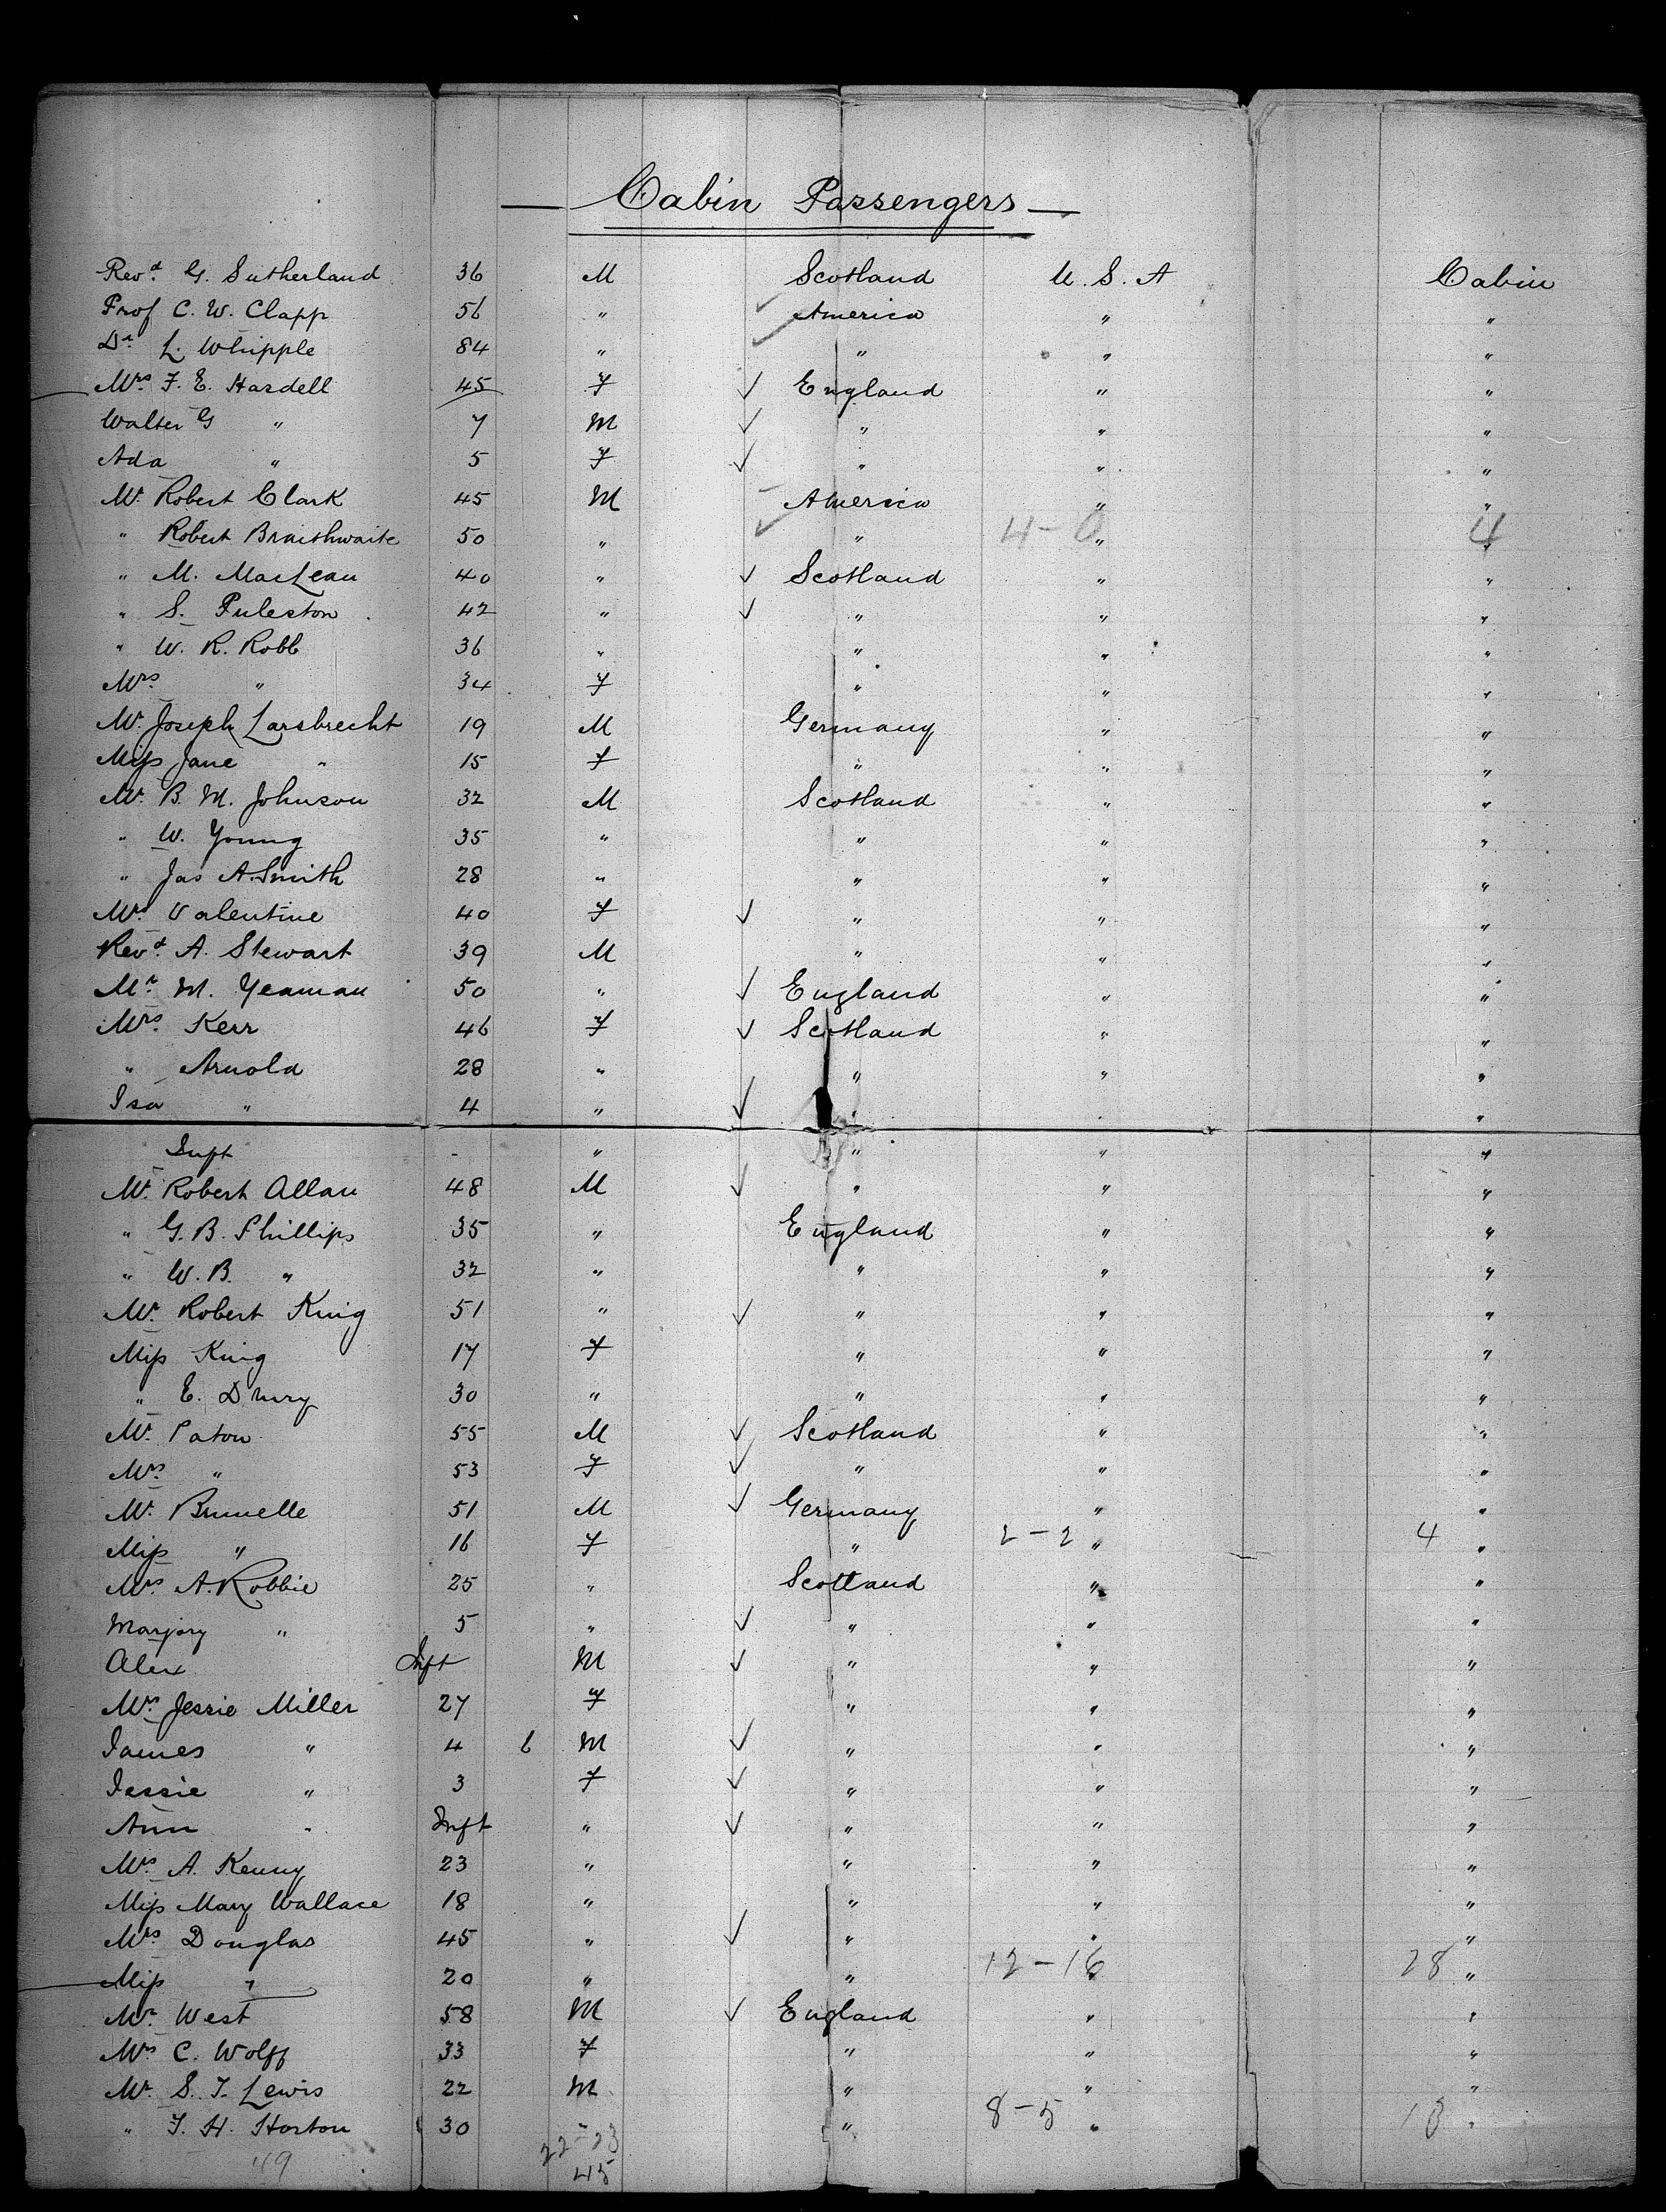 — Cabin Passengers —
Revd. G. Sutherland 36 M Scotland U. S. A Cabin
Prof C. W. Clapp 56 " ✓ America " "
Dr. L. Whipple 84 " " " "
Mrs. F. E. Hardell 45 F ✓ England " "
Walter G " 7 M ✓ " " "
Ada " 5 F ✓ " " "
Mr. Robert Clark 45 M America " "
" Robert Braithwaite 50 " ✓ " 4-0 " 4 "
" M. MacLean 40 " ✓ Scotland " "
" S. Puleston 42 " ✓ " " "
" W. R. Robb 36 " " " "
Mrs. " 34 F " " "
Mr. Joseph Larsbrecht 19 M Germany " "
Miss Jane " 15 F " " "
Mr. B. M. Johnson 32 M Scotland " "
" W. Young 35 " " " "
" Jas A. Smith 28 " " " "
Mrs. Valentine 40 F ✓ " " "
Revd. A. Stewart 39 M " " "
Mr. M. Yeaman 50 " ✓ England " "
Mrs. Kerr 46 F ✓ Scotland " "
" Arnold 28 " " " "
Isa " 4 " ✓ " " "
Inft - " " " "
Mr. Robert Allan 48 M ✓ " " "
" G. B. Phillips 35 " England " "
" W. B. " 32 " " " "
Mr. Robert King 51 " ✓ " " "
Miss King 17 F " " "
" E. Drury 30 " " " "
Mr. Paton 55 M ✓ Scotland " "
Mrs. " 53 F ✓ " " "
Mr. Brunelle 51 M ✓ Germany " "
Miss " 16 F " 2-2 " 4 "
Mrs. A. Robbie 25 " Scotland " "
Marjory " 5 " ✓ " " "
Alex Inft M ✓ " " "
Mrs. Jessie Miller 27 F " " "
James " 4 6 M ✓ " " "
Jessie " 3 F ✓ " " "
Ann " Inft " ✓ " " "
Mrs. A. Kenny 23 " " " "
Miss Mary Wallace 18 " " " "
Mrs Douglas 45 " ✓ " " "
Miss " 20 " " 12-16 " 28 "
Mr. West 58 M ✓ England " "
Mrs C. Wolff 33 F " " "
Mr. S. T. Lewis 22 M " " "
" T. H. Horton 30 " " 8-5 " 13 "
49 22-23
45